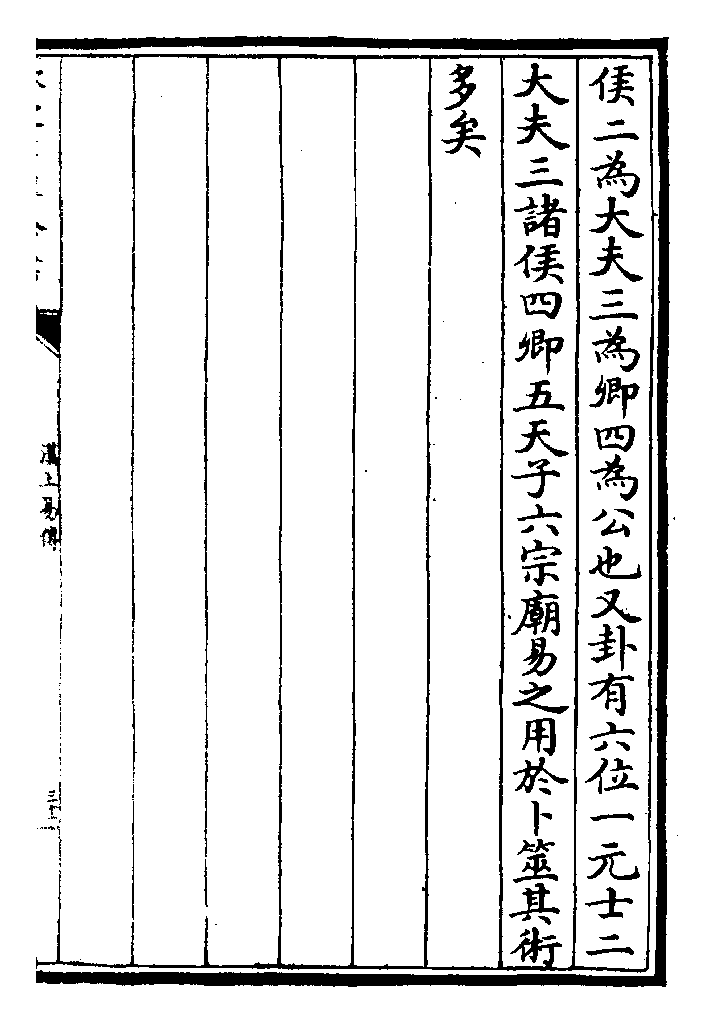 侯二為大夫三為卿四為公也又卦有六位一元士二
大夫三諸侯四卿五天子六宗廟易之用於卜筮其術
多矣
漢上易傳